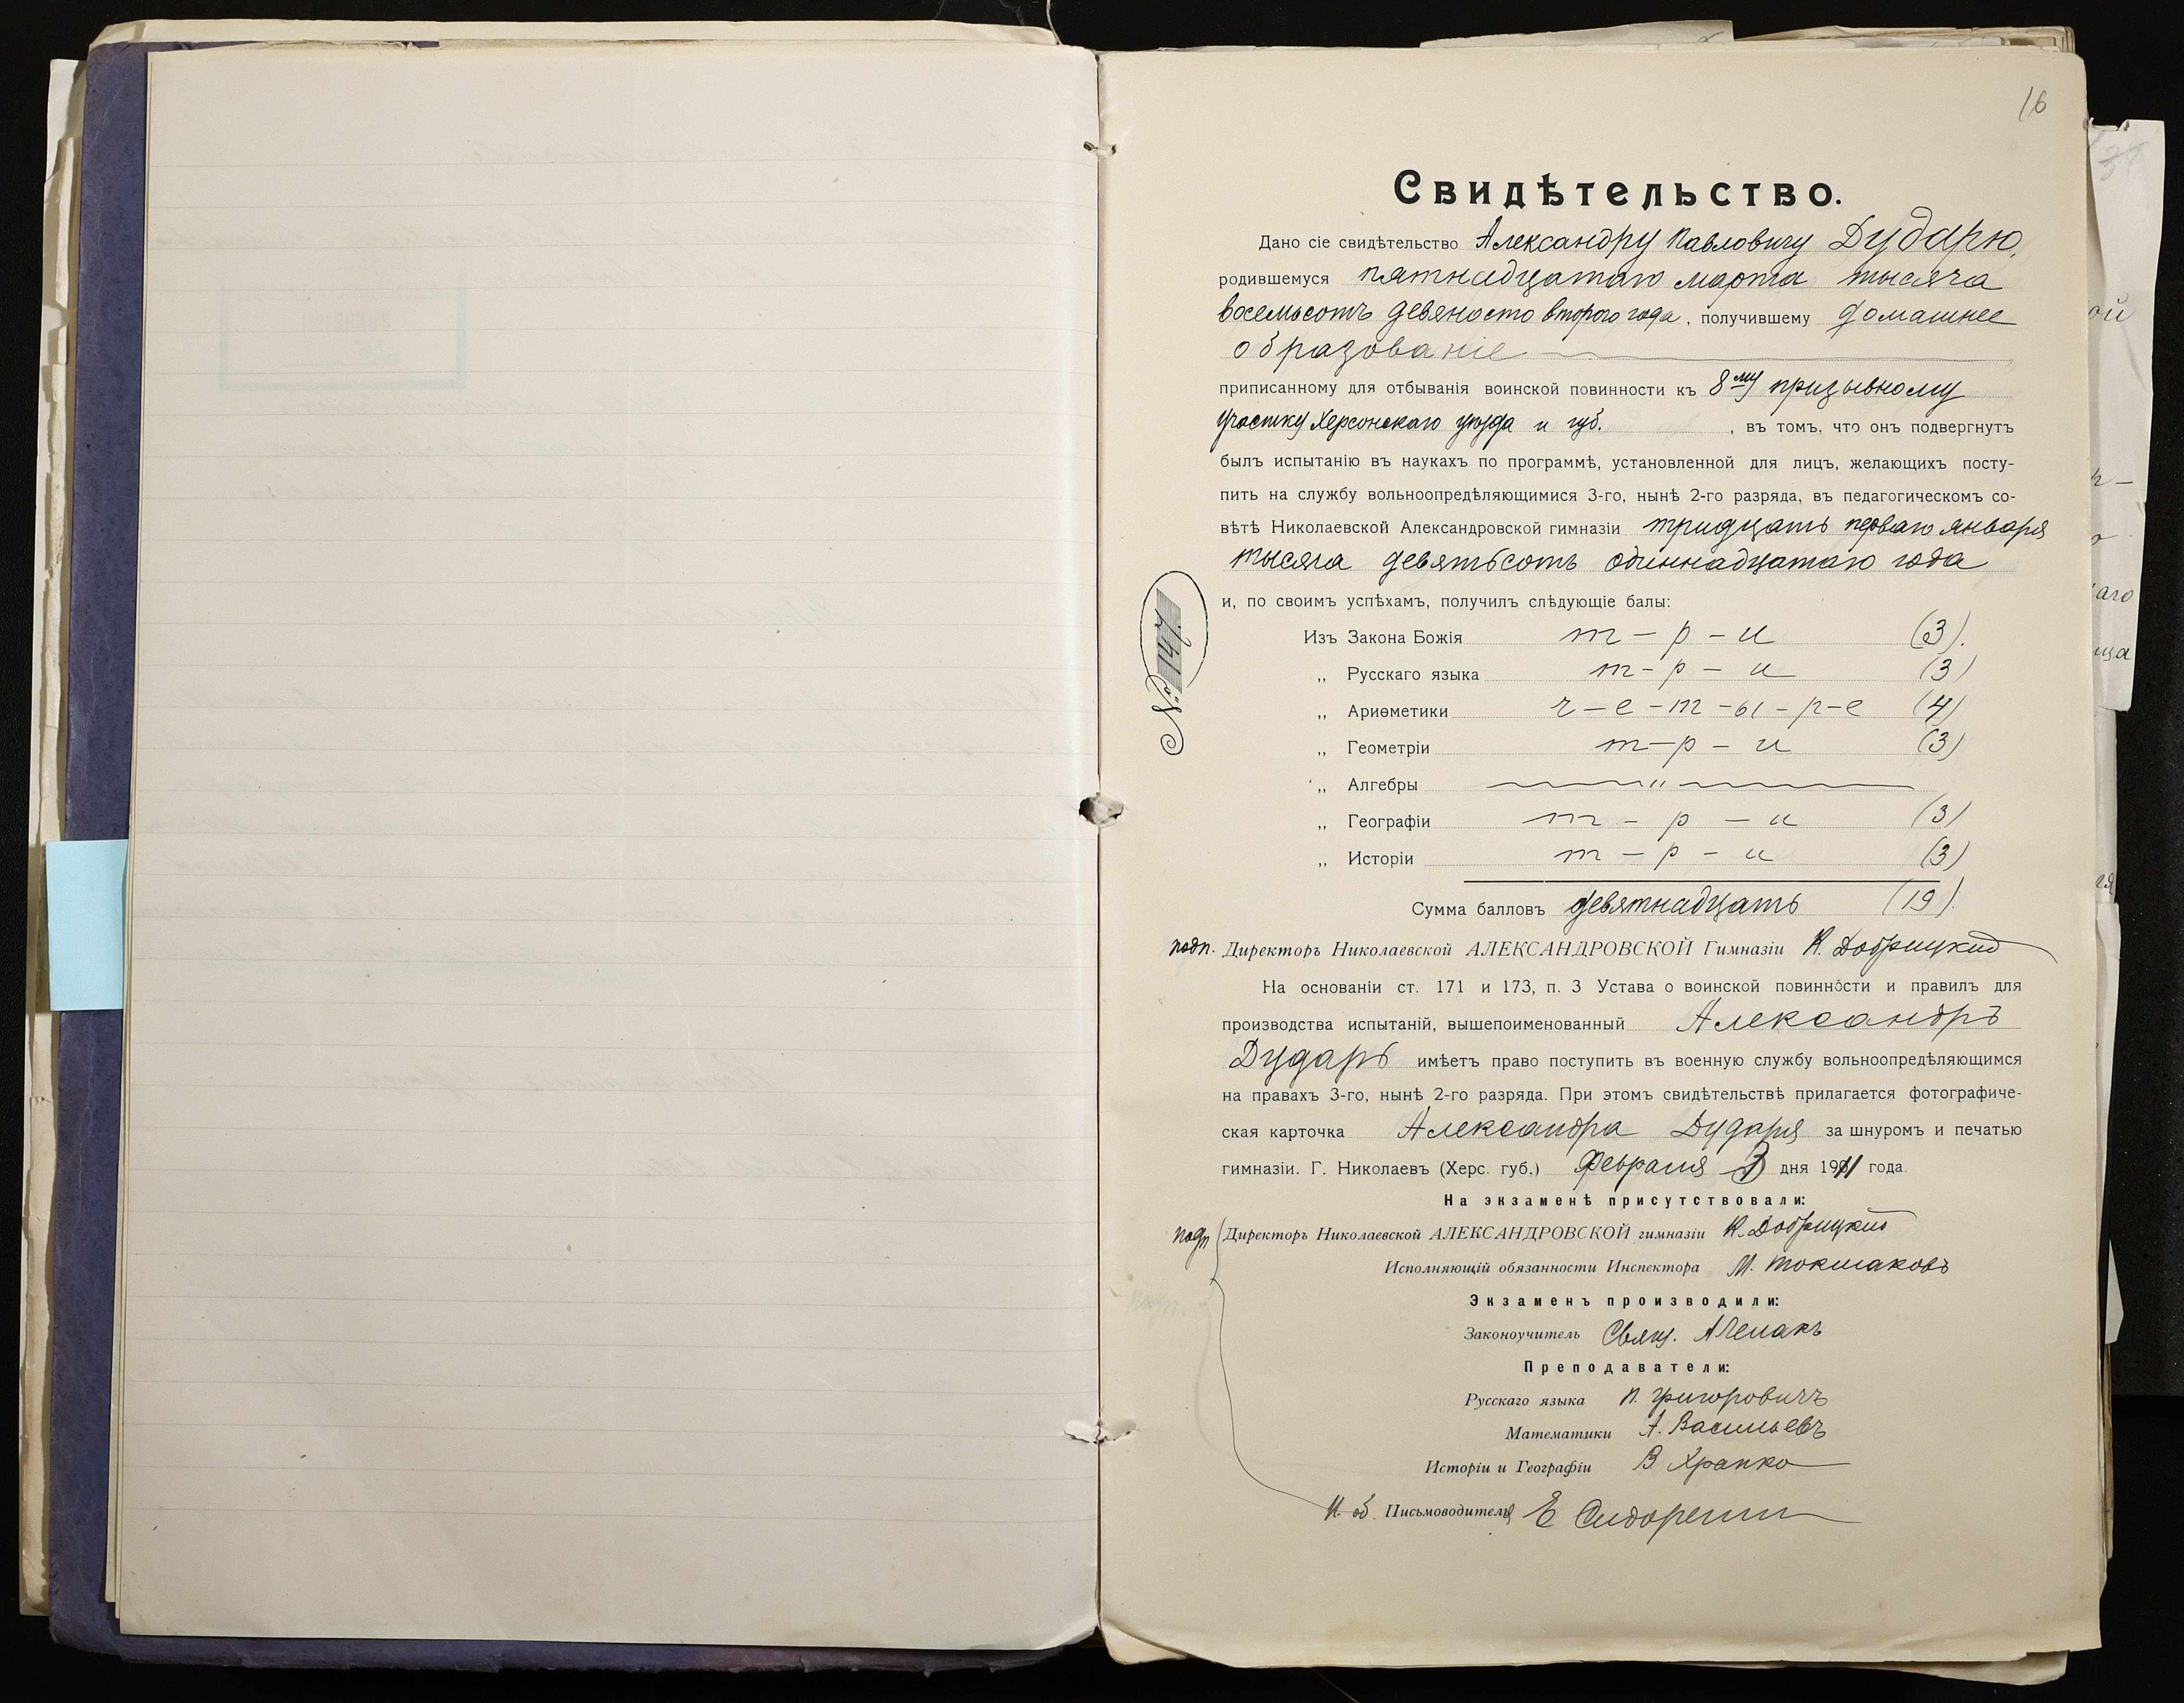 16
Свидѣтельство.
Дано сіе свидѣтельство Александру Павловичу Дударю,
родившемуся пятнадцатаго марта тысяча
восемьсотъ девяносто второго года, получившему домашнее
образованіе
приписанному для отбыванія воинской повинности къ 8му призывному
участку Херсонскаго уѣзда и губ. , въ томъ, что онъ подвергнутъ
былъ испытанію въ наукахъ по программѣ, установленной для лицъ, желающихъ посту-
пить на службу вольноопредѣляющимися 3-го, нынѣ 2-го разряда, въ педагогическомъ со-
вѣтѣ Николаевской Александровской гимназіи тридцать перваго января
тысяча девятьсотъ одиннадцатаго года
и, по своимъ успѣхамъ, получилъ слѣдующіе балы:
Изъ Закона Божія т-р-и (3).
„ Русскаго языка т-р-и (3)
„ Ариѳметики ч-е-т-ы-р-е (4)
„ Геометріи т-р-и (3)
„ Алгебры „
„ Географіи т-р-и (3)
„ Исторіи т-р-и (3)
Сумма балловъ девятнадцать (19).
№ 147
подп. Директоръ Николаевской АЛЕКСАНДРОВСКОЙ Гимназіи К. Добрицкий
На основаніи ст. 171 и 173, п. 3 Устава о воинской повинности и правилъ для
производства испытаній, вышепоименованный Александръ
Дударь имѣетъ право поступить въ военную службу вольноопредѣляющимся
на правахъ 3-го, нынѣ 2-го разряда. При этомъ свидѣтельствѣ прилагается фотографиче-
ская карточка Александра Дударя за шнуромъ и печатью
гимназіи. Г. Николаевъ (Херс. губ.) Февраля 3 дня 1911 года.
На экзаменѣ присутствовали:
подп Директоръ Николаевской АЛЕКСАНДРОВСКОЙ гимназіи К. Добрицкий
Исполняющій обязанности Инспектора М. Токмаковъ
Экзаменъ производили:
Законоучитель Свящ.
Преподаватели:
Русскаго языка П. Григоровичъ
Математики А. Васильевъ
Исторіи и Географіи В Храпко
И. об. Письмоводителя Е Сидоренко